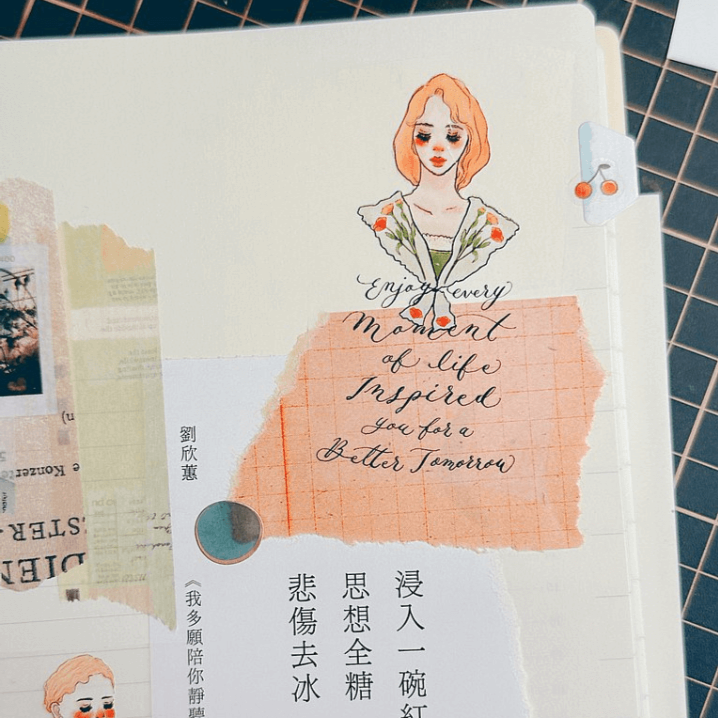 Enjoy every
Moment
of life
Inspired
you for a
Better Tomorrow
浸入一碗紅
思想全糖
悲傷去冰
劉欣蕙
《我多願陪你靜聽
e Konzerte
STER-
DIEN